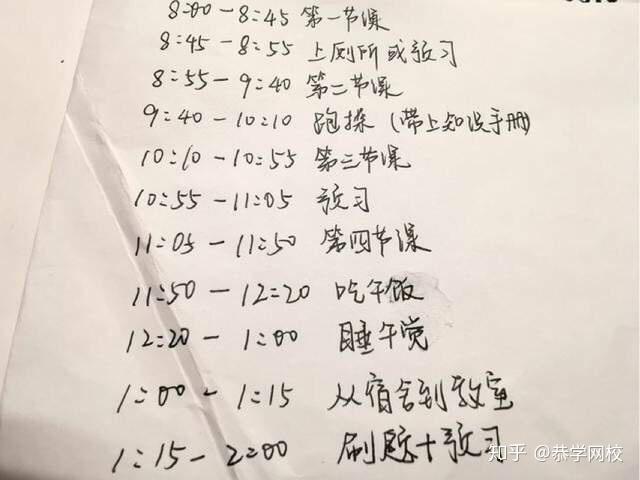 8:00-8:45 第一节课
8:45-8:55 上厕所或预习
8:55-9:40 第二节课
9:40-10:10 跑操(带上知识手册)
10:10-10:55 第三节课
10:55-11:05 预习
11:05-11:50 第四节课
11:50-12:20 吃午饭
12:20-1:00 睡午觉
1:00-1:15 从宿舍到教室
1:15-2:00 刷题+预习
知乎 @恭学网校